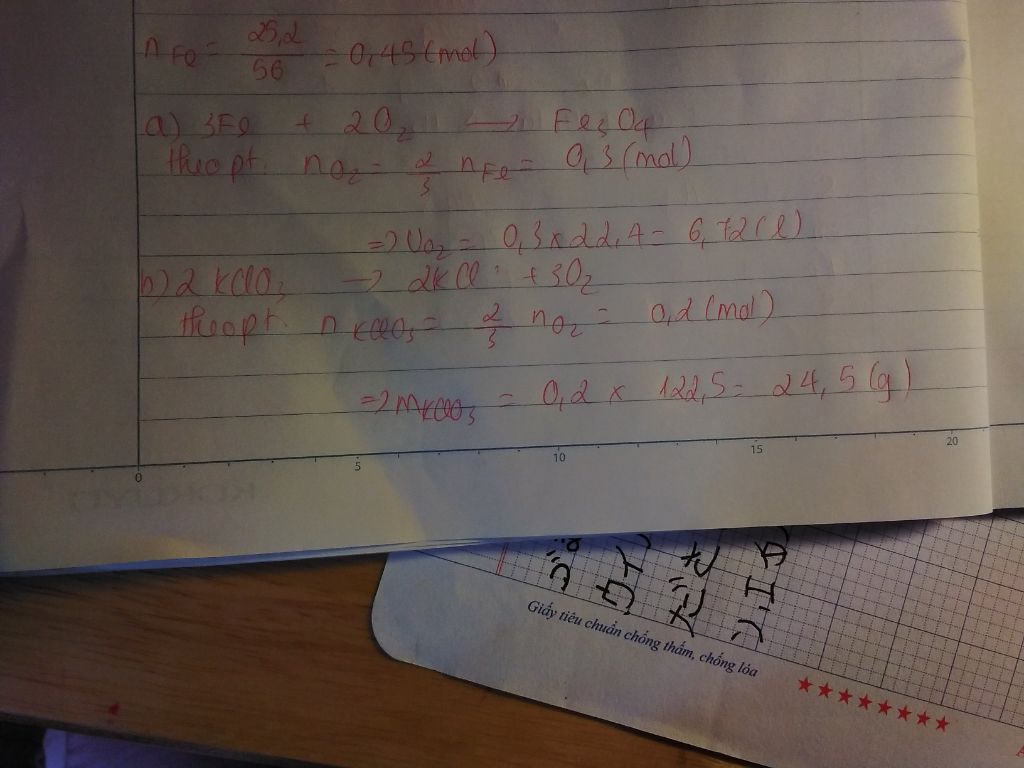 n Fe = 25,2 / 56 = 0,45 (mol)
a) 3Fe + 2O2 → Fe3O4
theo pt: nO2 = 2/3 nFe = 0,3 (mol)
=> VO2 = 0,3 x 22,4 = 6,72 (l)
b) 2KClO3 → 2KCl + 3O2
theo pt: n KClO3 = 2/3 nO2 = 0,2 (mol)
=> mKClO3 = 0,2 x 122,5 = 24,5 (g)
0 5 10 15 20
Giấy tiêu chuẩn chống thấm, chống lóa